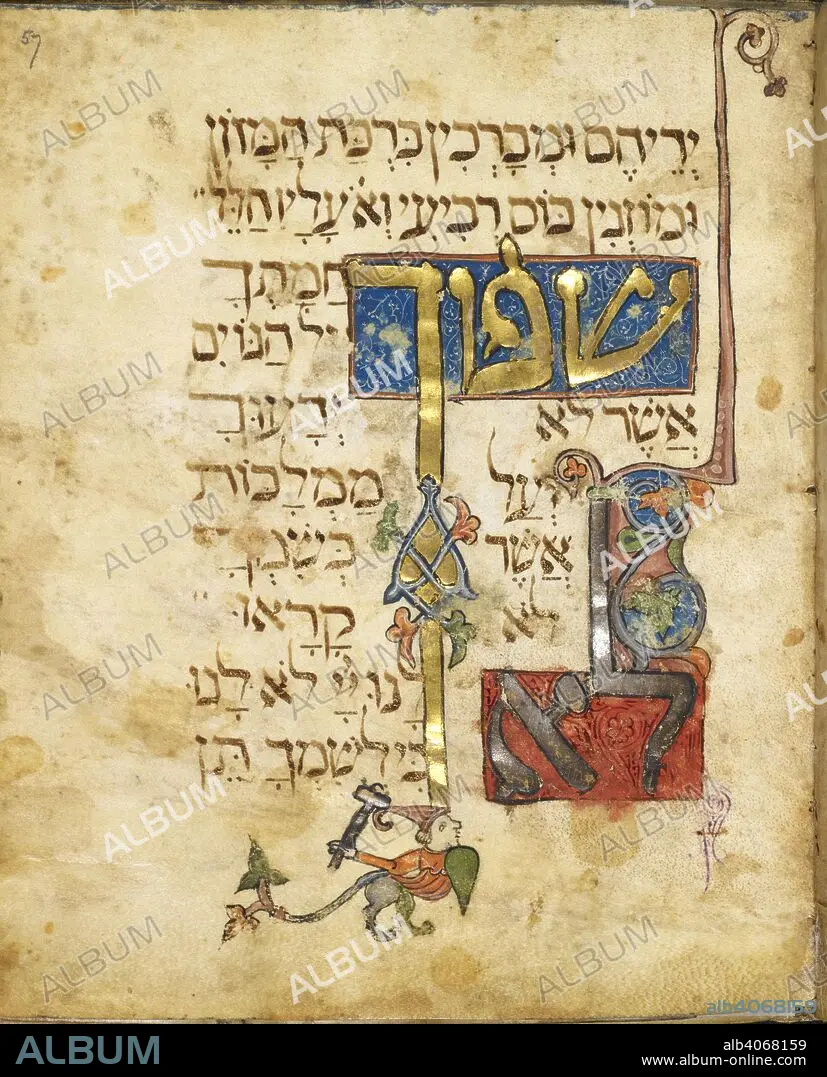 57
יְדֵיהֶם וּמְבָרְכִין בִּרְכַּת הַמָּזוֹן
וּמוֹזְגִין כּוֹס רְבִיעִי וְאֹ' עָלָיו הַלֵּל
שפוך חֲמָתְךָ
אֶל הַגּוֹיִם
אֲשֶׁר לֹא יְדָעוּךָ
וְעַל מַמְלָכוֹת
אֲשֶׁר בְּשִׁמְךָ
לֹא קָרָאוּ
לא לָנוּ יְיָ לֹא לָנוּ
כִּי לְשִׁמְךָ תֵּן
ALBUM
alb4068159
ALBUM
alb4068159
www.album-online.com